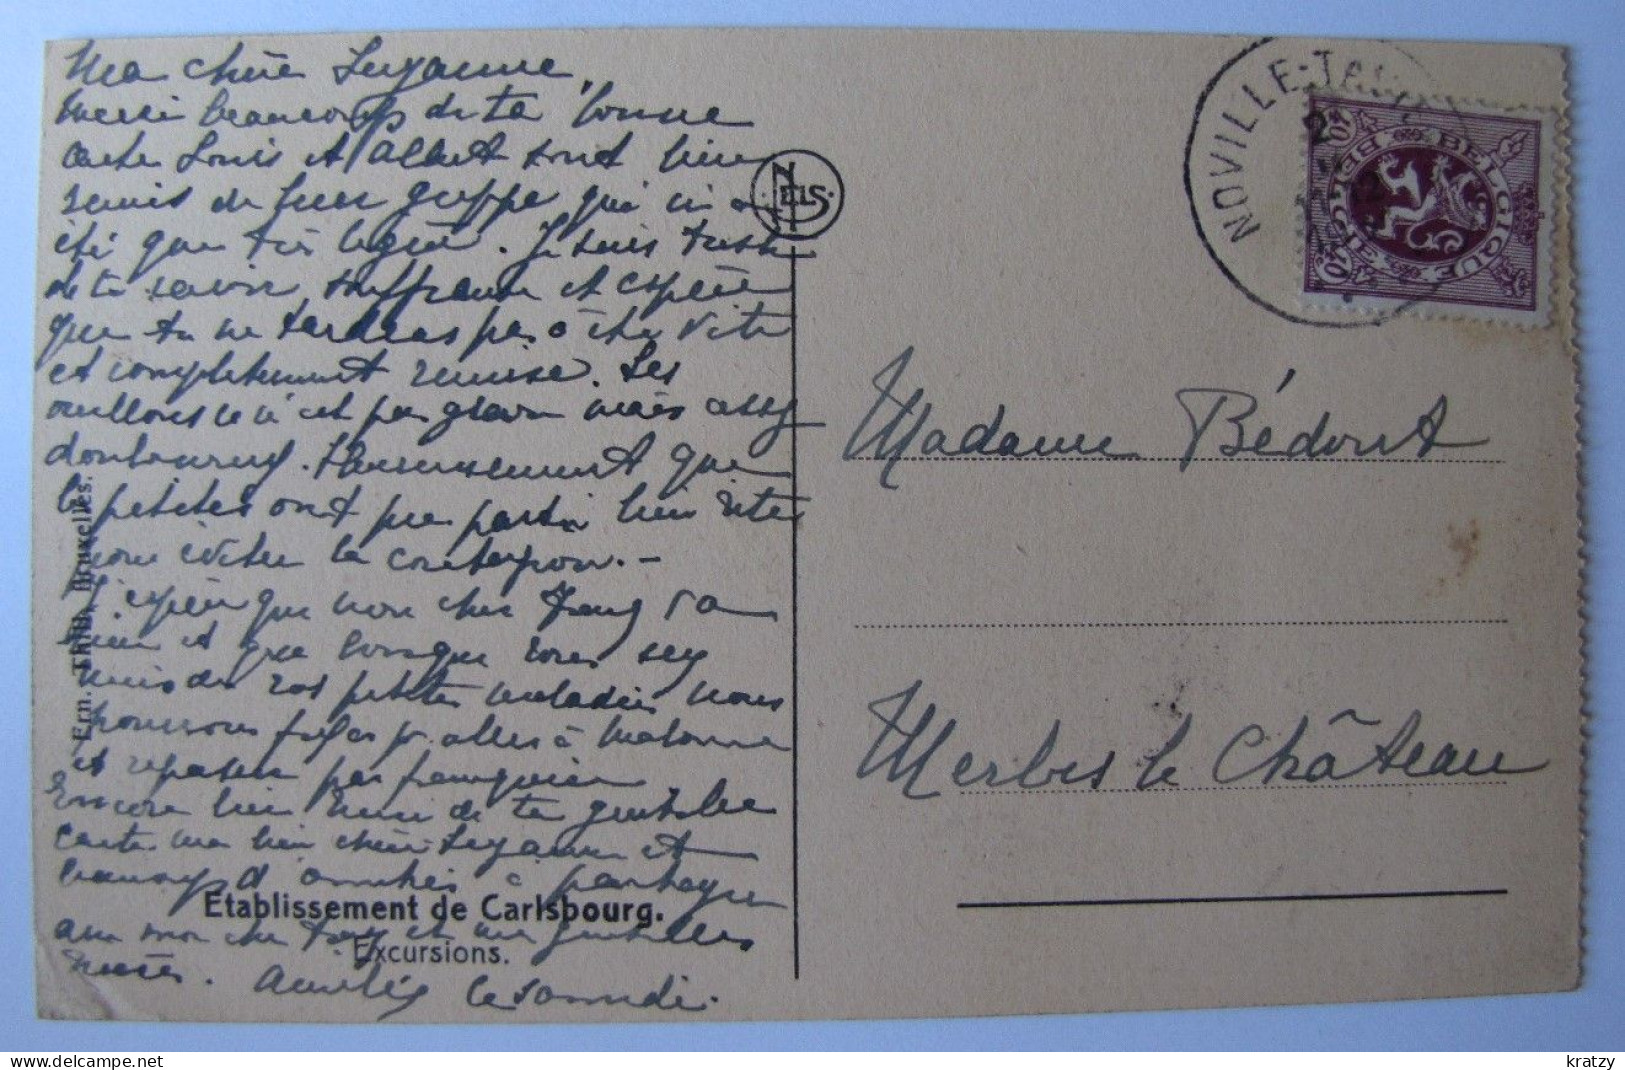 Ma chère Suzanne,
Merci beaucoup de ta bonne
carte Louis et Albert sont bien
remis de leur grippe qui n'a
été que très légère. Je suis triste
de te savoir souffrante et espère
que tu ne tarderas pas à être vite
et complètement remise. Les
oreillons ce n'est pas grave mais assez
douloureux. Heureusement que
les petites ont pu partir bien vite
pour éviter la contagion. -
J'espère que mon cher va
bien et que lorsque vous serez
remis de vos petites maladies nous
pourrons aller à Malonne
et repasser par
Encore bien merci de ta gentille
carte ma bien chère Suzanne et
d'amitiés à partager
avec mon cher et mes gentilles
nièces. ce samedi.
Etablissement de Carlsbourg.
Excursions.
Ern. Thill, Bruxelles.
NELS
NOVILLE-TAV
BELGIQUE
BELGIE
40c
Madame Bédoret
Merbes le Château
kratzy